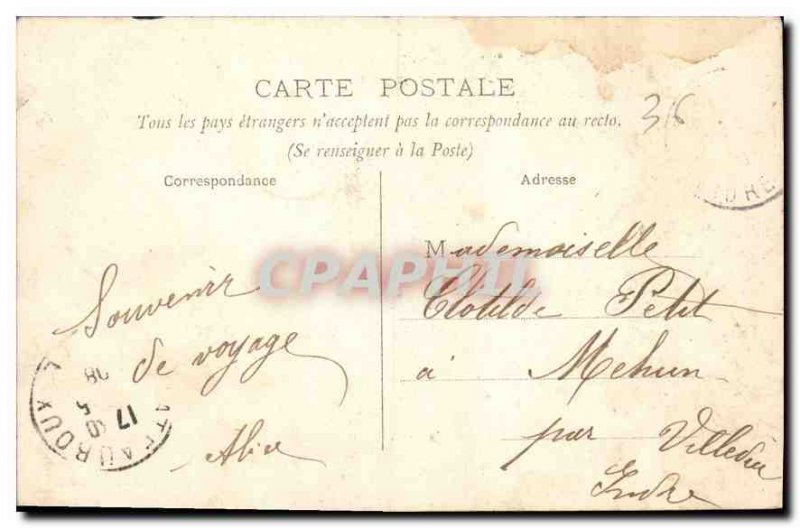 CARTE POSTALE
Tous les pays étrangers n'acceptent pas la correspondance au recto.
(Se renseigner à la Poste)
36
Correspondance
Adresse
INDRE
Souvenir
de voyage
Alice
Mademoiselle
Clotilde Petit
à Mehun
par Villedieu
Indre
CPAPHIL
17
5
ATEAUROUX